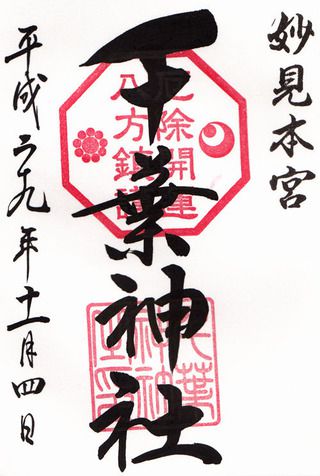 妙見本宮
千葉神社
平成二九年十一月四日
厄除開運
八方鎮